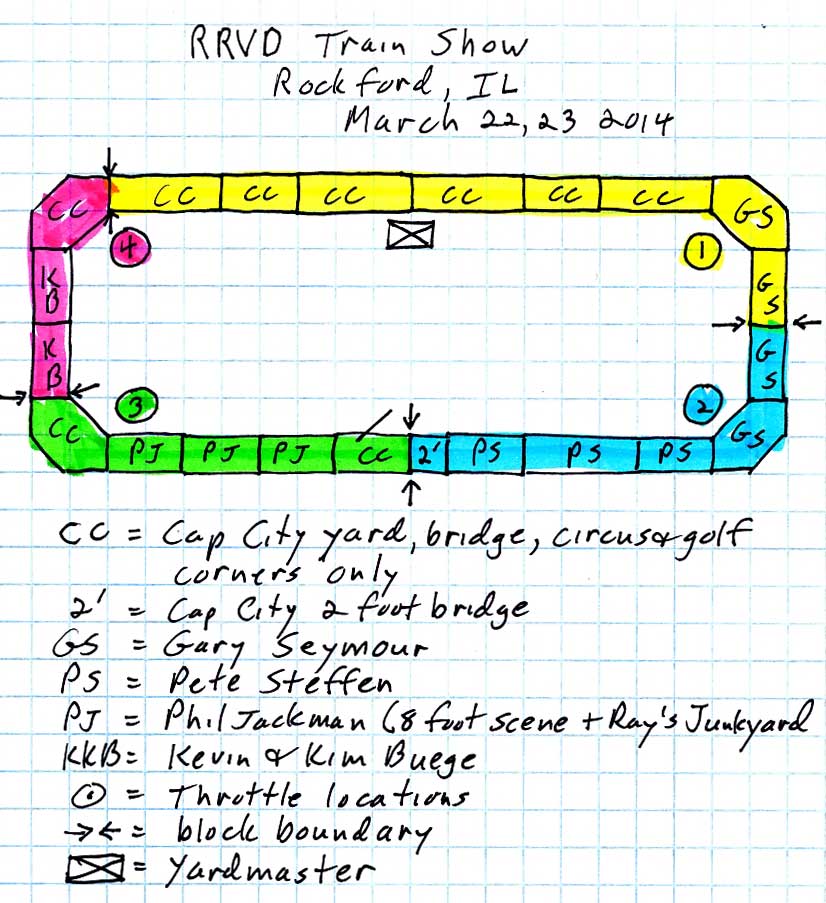 RRVD Train Show
Rockford, IL
March 22, 23 2014
CC CC CC CC CC CC
CC GS
4 1
KB GS
KB GS
3 2
CC GS
PJ PJ PJ CC 2' PS PS PS
CC = Cap City yard, bridge, circus & golf
corners only
2' = Cap City 2 foot bridge
GS = Gary Seymour
PS = Pete Steffen
PJ = Phil Jackman (8 foot scene + Ray's Junkyard
KKB = Kevin & Kim Buege
= Throttle locations
→← = block boundary
= Yardmaster